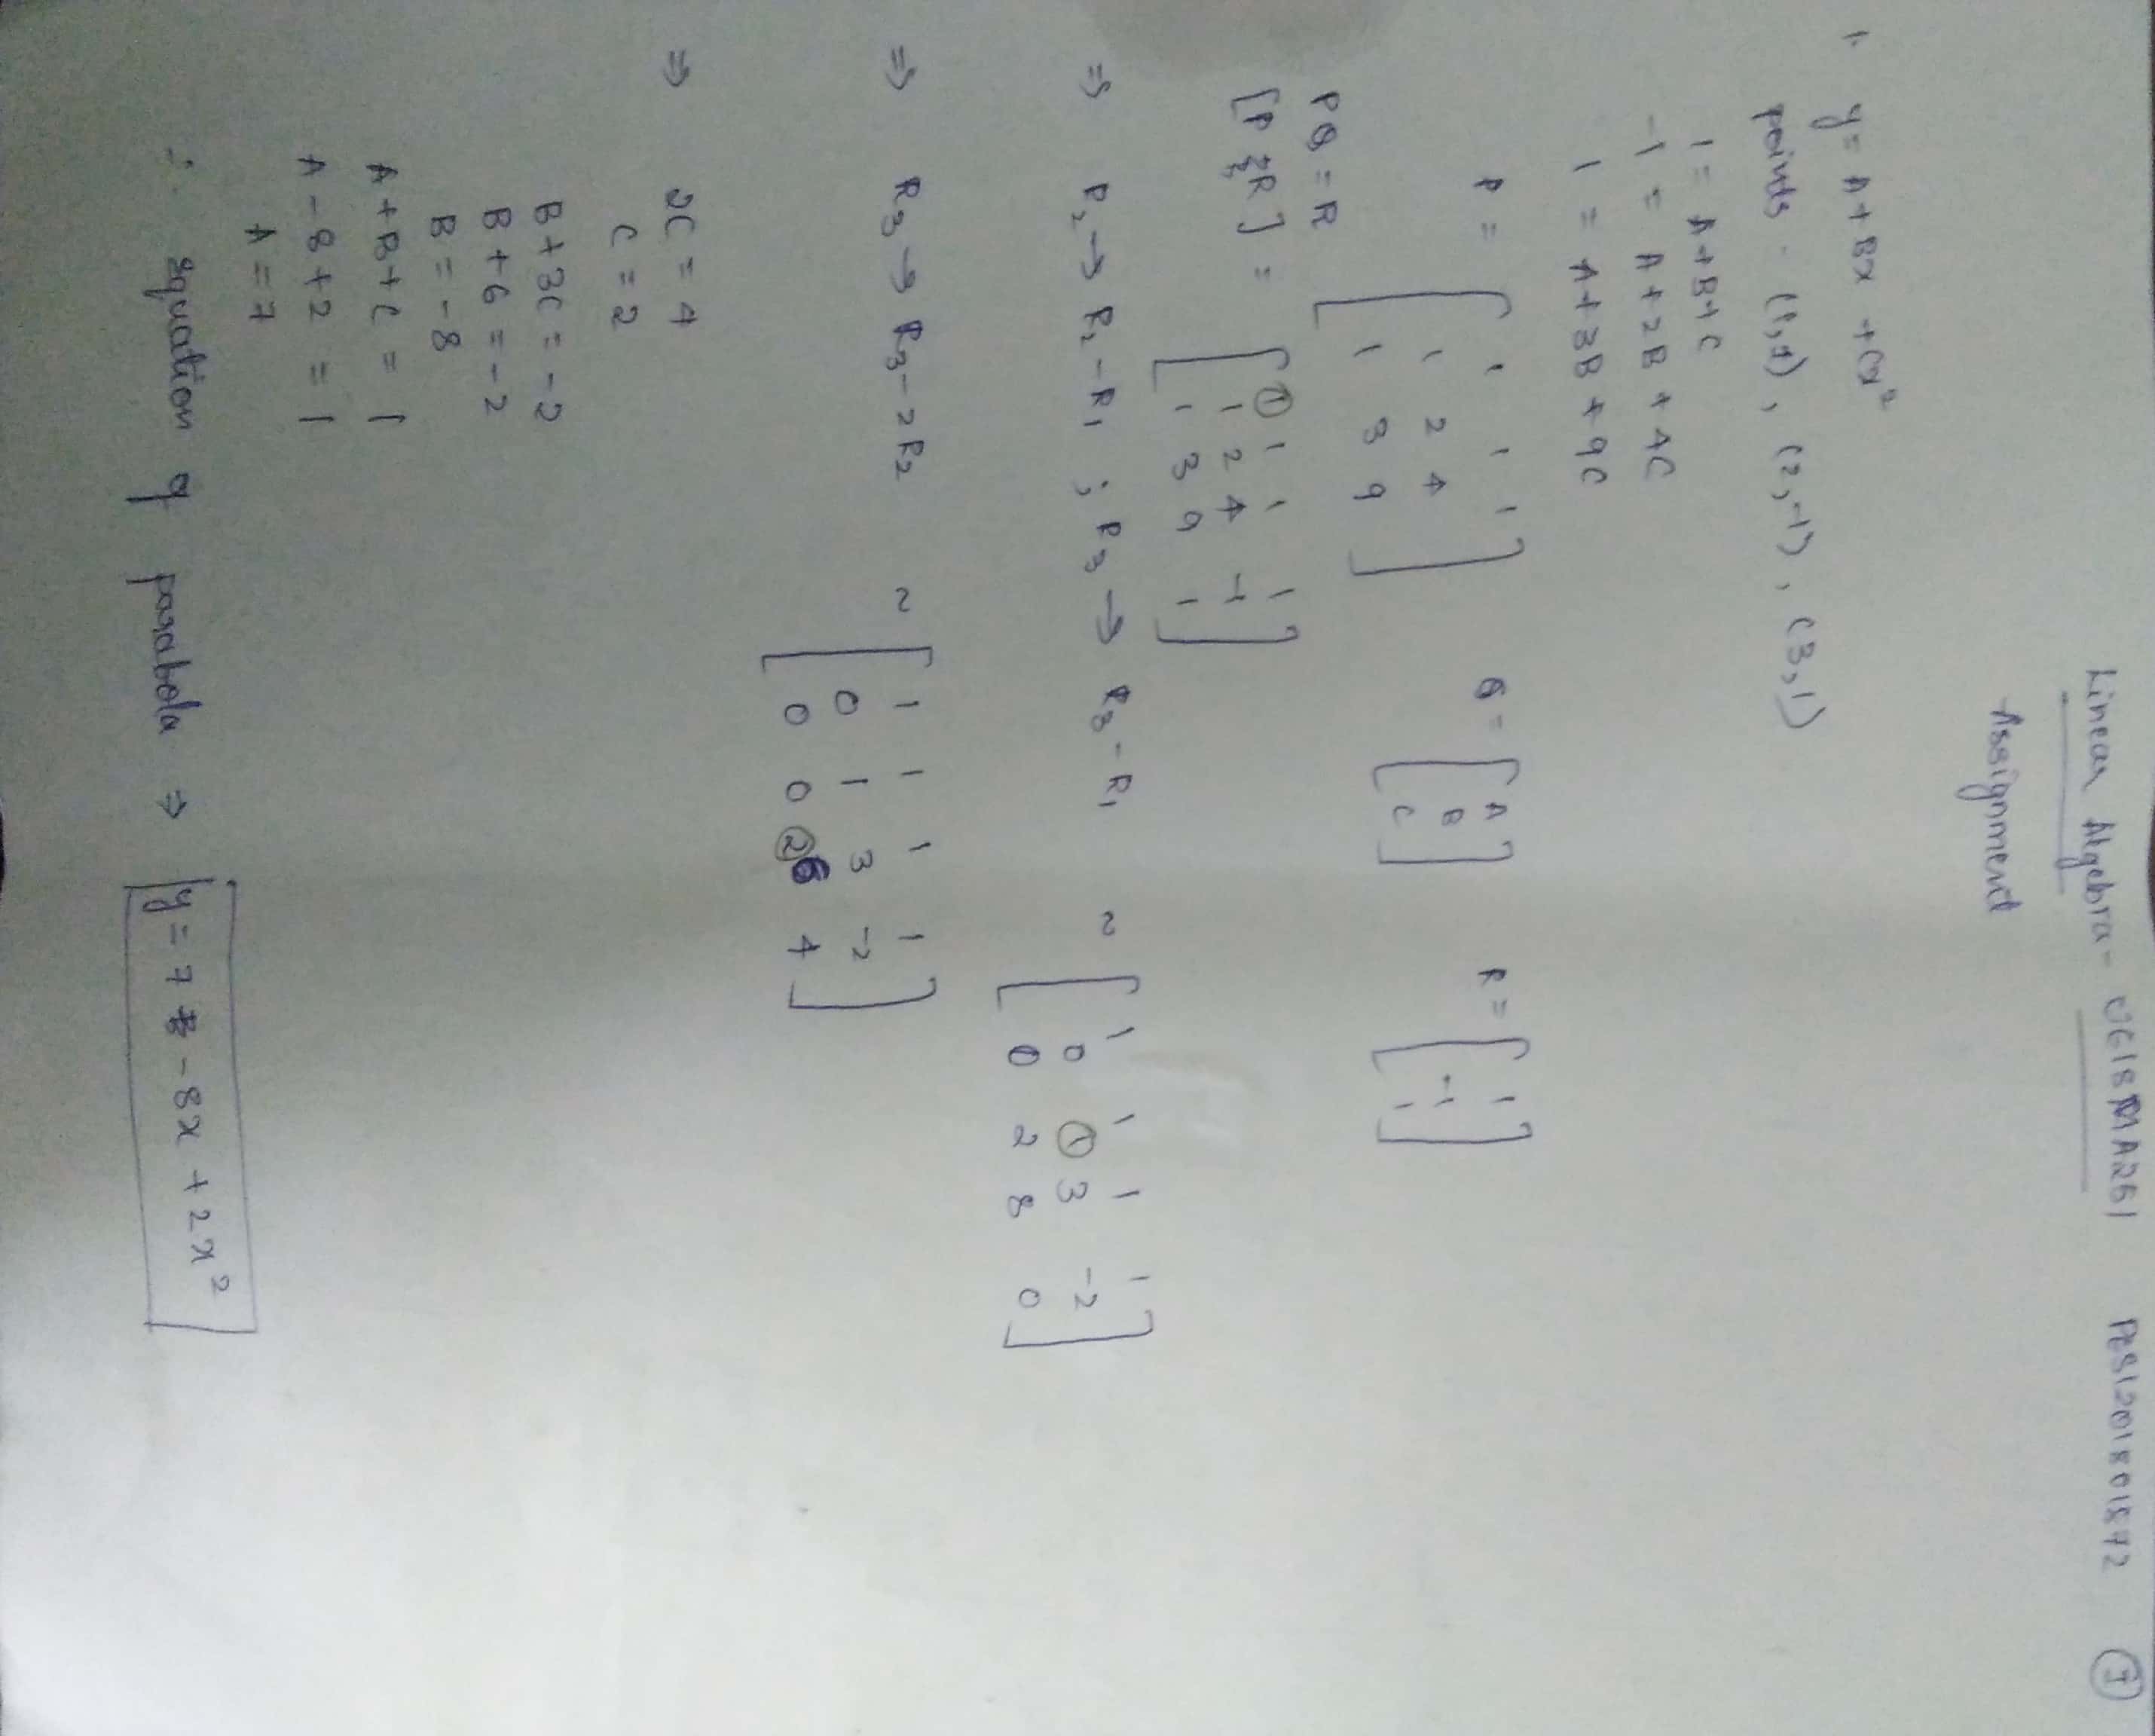 Linear Algebra - UE18MA251 PES1201801872 1
Assignment
1. y = A + Bx + Cx²
points - (1,1), (2,-1), (3,1)
1 = A+B+C
-1 = A+2B+4C
1 = A+3B+9C
P = [ 1 1 1 Q = [ A R = [ 1
1 2 4 B -1
1 3 9 ] C ] 1 ]
PQ = R
[P : R] = [ 1 1 1 1
1 2 4 -1
1 3 9 1 ]
⇒ R₂ → R₂ - R₁ ; R₃ → R₃ - R₁ ~ [ 1 1 1 1
0 1 3 -2
0 2 8 0 ]
⇒ R₃ → R₃ - 2R₂ ~ [ 1 1 1 1
0 1 3 -2
0 0 2 4 ]
⇒ 2C = 4
C = 2
B + 3C = -2
B + 6 = -2
B = -8
A + B + C = 1
A - 8 + 2 = 1
A = 7
∴ equation of parabola ⇒ y = 7 - 8x + 2x²